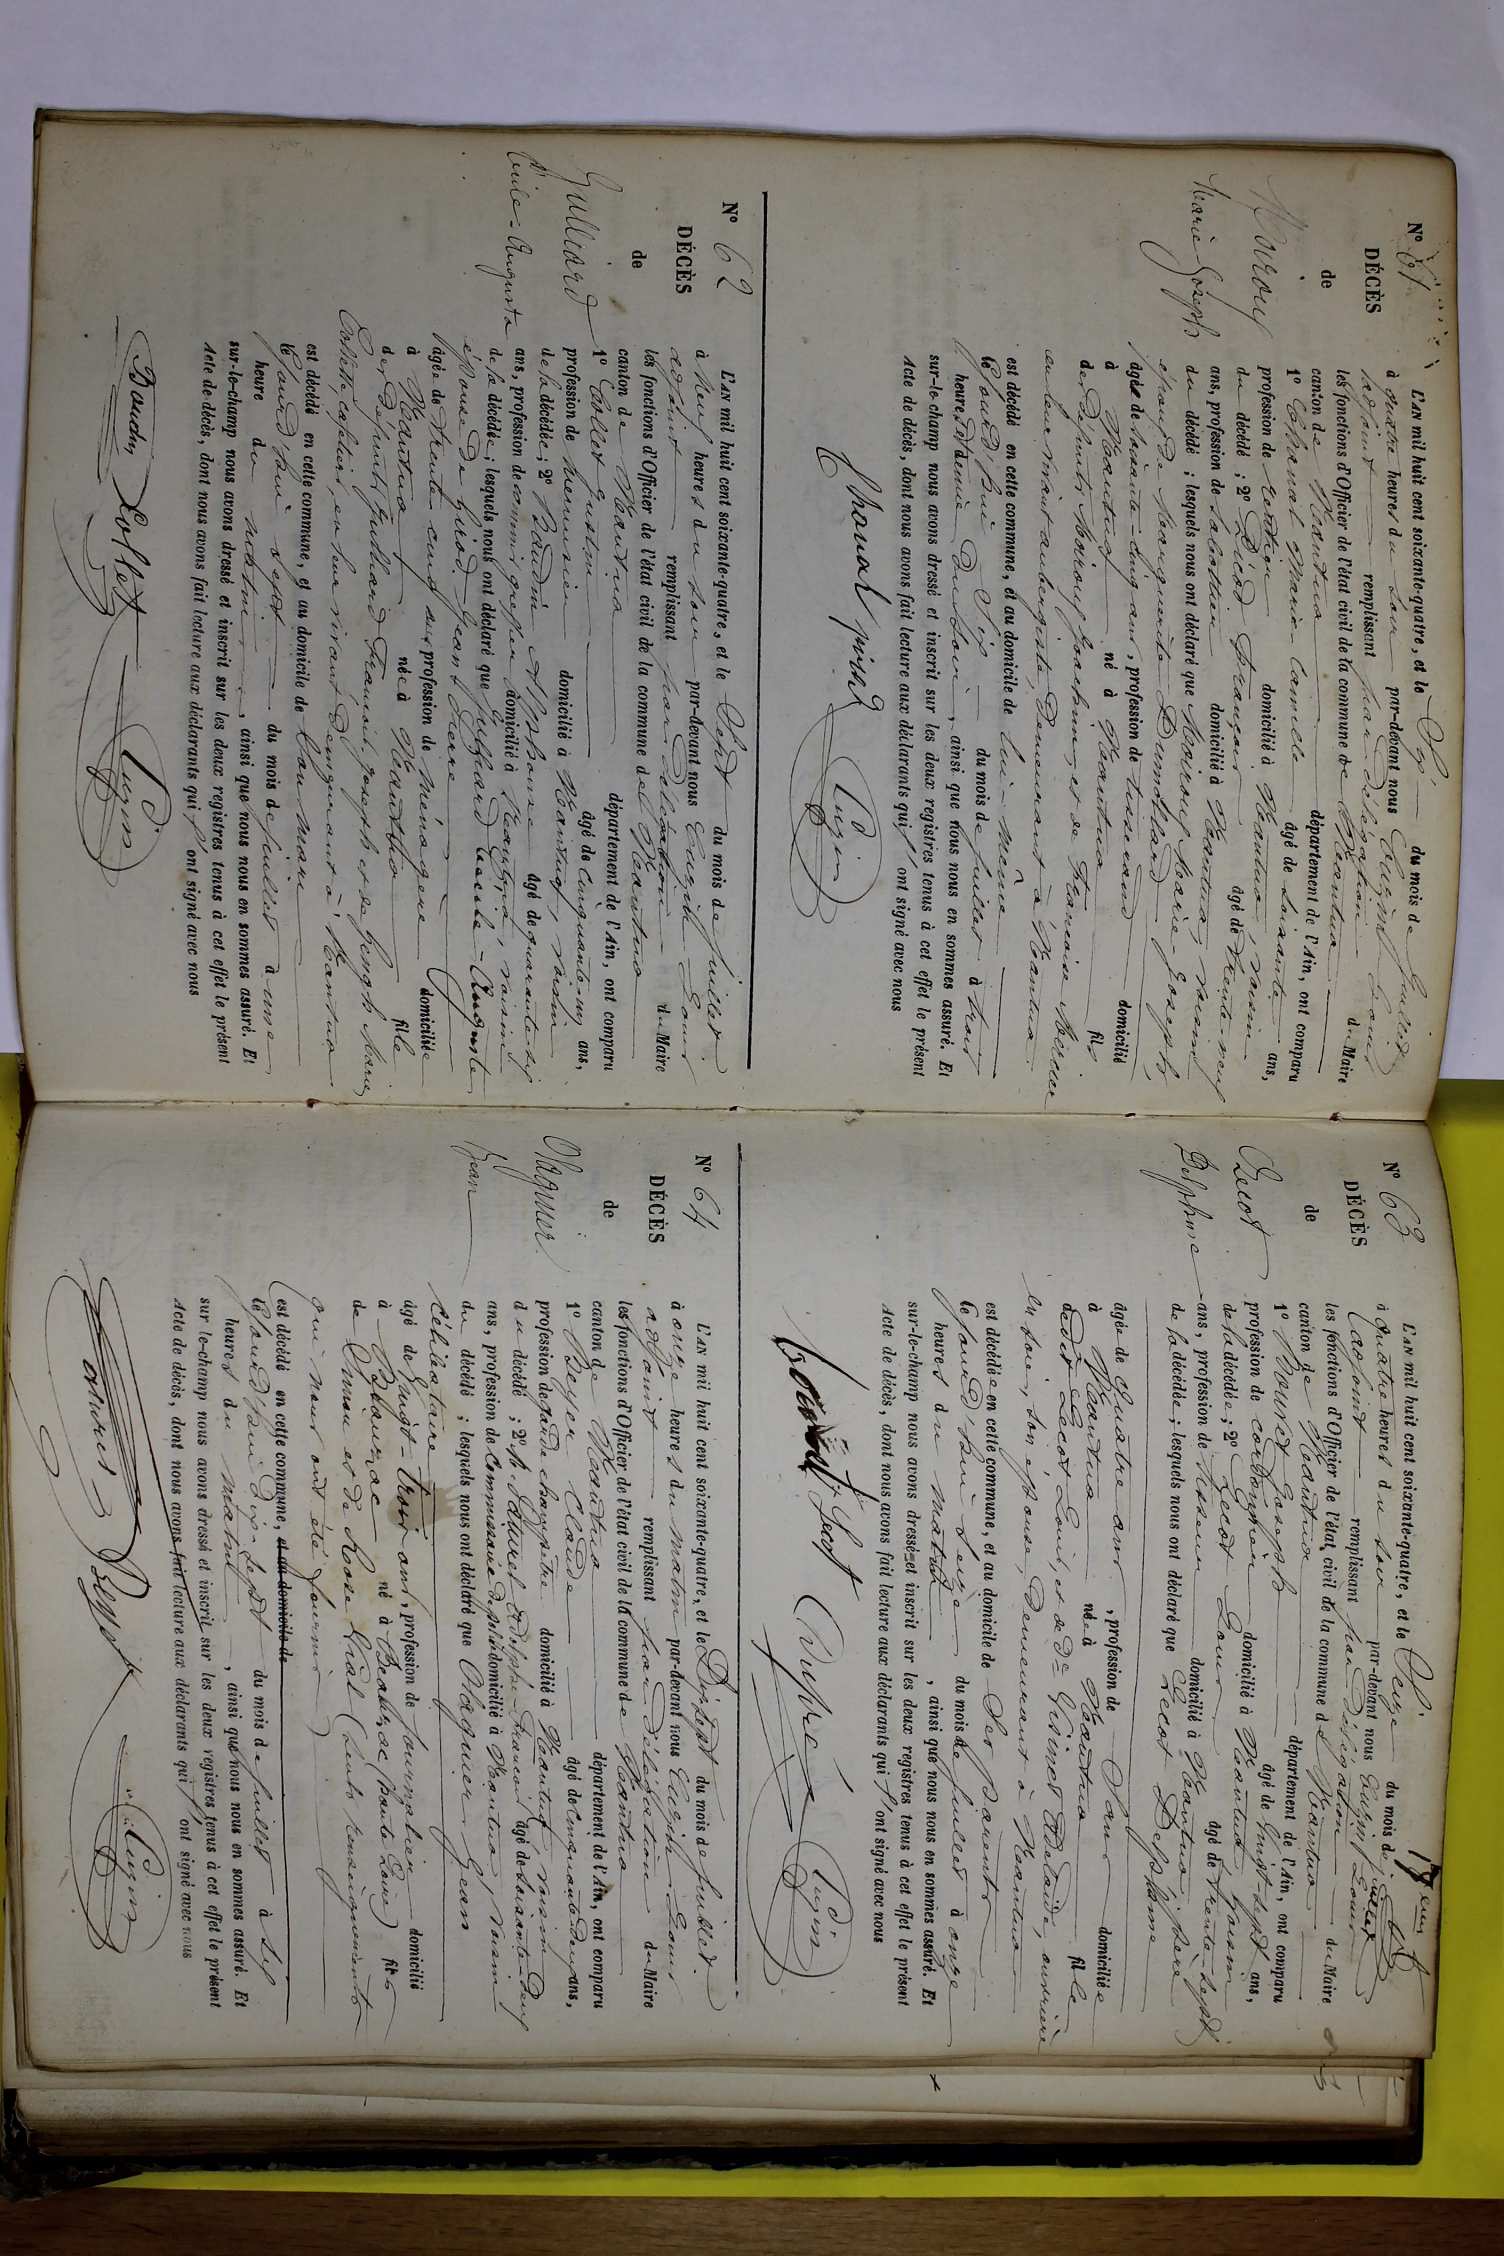 N° 61
DÉCÈS
de
Moirouf
Marie-Joseph
L'AN mil huit cent soixante-quatre, et le Six du mois de Juillet
à quatre heures du soir par-devant nous Eugène
adjoint remplissant par délégation du Maire
les fonctions d'Officier de l'état civil de la commune de Nantua
canton de Nantua département de l'Ain, ont comparu
1° Chonal Marie Camille âgé de soixante ans,
profession de domicilié à Nantua, voisin
du décédé ; 2° Lécot François âgé de trente-neuf
ans, profession de sabottier domicilié à Nantua, voisin
du décédé ; lesquels nous ont déclaré que Moirouf Marie-Joseph,
époux de Marguerite Dumollard
âgé de soixante-cinq ans, profession de tisserand domicilié
à Nantua né à Nantua fils
de défunts Moirouf Joachim, et de Françoise
en leur vivant aubergiste, demeurant à Nantua
est décédé en cette commune, et au domicile de lui-même
le jourd'hui Six du mois de juillet à trois
heures et demie du soir, ainsi que nous nous en sommes assuré. Et
sur-le-champ nous avons dressé et inscrit sur les deux registres tenus à cet effet le présent
Acte de décès, dont nous avons fait lecture aux déclarants qui ont signé avec nous
N° 62
DÉCÈS
de
Julliard
Cécile-Augusta
L'AN mil huit cent soixante-quatre, et le Sept du mois de juillet
à neuf heures du soir par-devant nous
adjoint remplissant par délégation du Maire
les fonctions d'Officier de l'état civil de la commune de Nantua
canton de Nantua département de l'Ain, ont comparu
1° Collet Gustin âgé de cinquante-un ans,
profession de menuisier domicilié à Nantua, voisin
de la décédée ; 2° Baudin Alphonse âgé de quarante-six
ans, profession de commis greffier domicilié à Nantua, voisin
de la décédée ; lesquels nous ont déclaré que Julliard Cécile-Auguste
épouse de Girod Jean Pierre
âgée de trente cinq ans, profession de ménagère domiciliée
à Nantua née à Nantua fille
de défunts Julliard François Joseph et de
en leur vivant demeurant à Nantua
est décédé en cette commune, et au domicile de son mari
le jourd'hui sept du mois de juillet à une
heure du matin, ainsi que nous nous en sommes assuré. Et
sur-le-champ nous avons dressé et inscrit sur les deux registres tenus à cet effet le présent
Acte de décès, dont nous avons fait lecture aux déclarants qui ont signé avec nous
Baudin Collet
N° 63
DÉCÈS
de
Lecot
Delphine
L'AN mil huit cent soixante-quatre, et le Seize du mois de juillet
à quatre heures du soir par-devant nous
adjoint remplissant par délégation du Maire
les fonctions d'Officier de l'état civil de la commune de Nantua
canton de Nantua département de l'Ain, ont comparu
1° Bouret Joseph âgé de vingt-sept ans,
profession de cordonnier domicilié à Nantua, cousin
de la décédée ; 2° Lecot Louis âgé de trente-sept
ans, profession de domicilié à Nantua, père
de la décédée ; lesquels nous ont déclaré que Lecot Delphine
âgée de quatre ans, profession de Sans domiciliée
à Nantua née à Nantua fille
dudit Lecot Louis, et de De Adélaïde, ouvrière
en soie, son épouse, demeurant à Nantua
est décédée en cette commune, et au domicile de ses parents
le jourd'hui seize du mois de juillet à onze
heures du matin, ainsi que nous nous en sommes assuré. Et
sur-le-champ nous avons dressé et inscrit sur les deux registres tenus à cet effet le présent
Acte de décès, dont nous avons fait lecture aux déclarants qui ont signé avec nous
N° 64
DÉCÈS
de
Olagnier
Jean
L'AN mil huit cent soixante-quatre, et le Dix-sept du mois de juillet
à onze heures du matin par-devant nous
adjoint remplissant par délégation du Maire
les fonctions d'Officier de l'état civil de la commune de Nantua
canton de Nantua département de l'Ain, ont comparu
1° Claude âgé de cinquante-deux ans,
profession de garde champêtre domicilié à Nantua, voisin
du décédé ; 2° Adolphe-François âgé de soixante-neuf
ans, profession de commissaire de police domicilié à Nantua, voisin
du décédé ; lesquels nous ont déclaré que Olagnier Jean
célibataire
âgé de vingt-trois ans, profession de journalier domicilié
à Beauzac né à Beauzac (Haute Loire) fils
de Simon et de Rose Vial (seuls renseignements
qui nous ont été fournis)
est décédé en cette commune, et au domicile de
le jourd'hui dix-sept du mois de juillet à six
heures du matin, ainsi que nous nous en sommes assuré. Et
sur-le-champ nous avons dressé et inscrit sur les deux registres tenus à cet effet le présent
Acte de décès, dont nous avons fait lecture aux déclarants qui ont signé avec nous